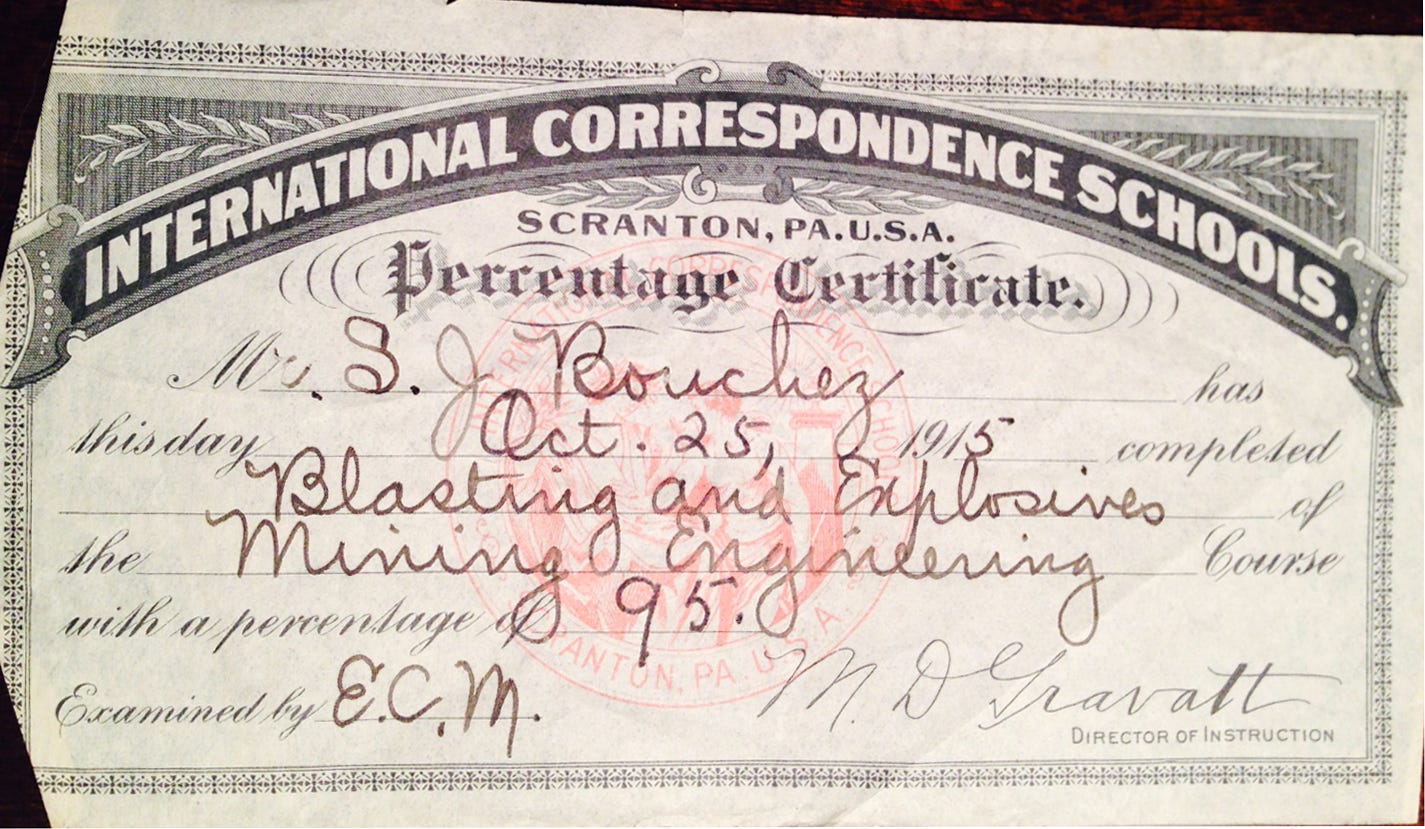 INTERNATIONAL CORRESPONDENCE SCHOOLS.
SCRANTON, PA. U.S.A.
Percentage Certificate.
Mr. S. J Bouchez has
this day Oct. 25, 1915 completed
Blasting and Explosives of
the Mining Engineering Course
with a percentage of 95.
Examined by E.C.M. M. D Gravatt
DIRECTOR OF INSTRUCTION
INTERNATIONAL CORRESPONDENCE SCHOOLS
SCRANTON, PA. U.S.A.